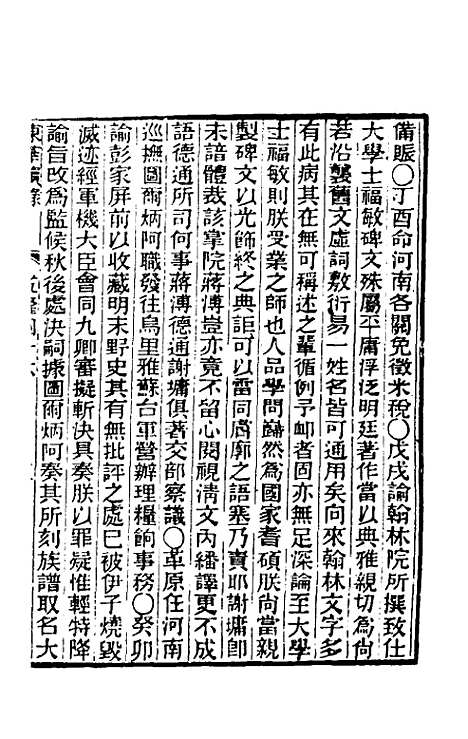 備賑〇丁酉命河南各關免徵米稅〇戊戌諭翰林院所撰致仕
大學士福敏碑文殊屬平庸浮泛明廷著作當以典雅親切為尚
若沿襲舊文虛詞敷衍易一姓名皆可通用矣向來翰林文字多
有此病其在無可稱述之輩循例予卹者固亦無足深論至大學
士福敏則朕受業之師也人品學問巋然為國家耆碩朕尚當親
製碑文以光飾終之典詎可以雷同膚廓之語塞乃責耶謝墉卽
未諳體裁該掌院蔣溥豈亦竟不留心閱視淸文內繙譯更不成
語德通所司何事蔣溥德通謝墉俱著交部察議〇革原任河南
巡撫圖爾炳阿職發往烏里雅蘇台軍營辦理糧餉事務〇癸卯
諭彭家屏前以收藏明末野史其有無批評之處已被伊子燒毀
滅迹經軍機大臣會同九卿審擬斬決具奏朕以罪疑惟輕特降
諭旨改為監候秋後處決嗣據圖爾炳阿奏其所刻族譜取名大
東華續錄 乾隆四十六